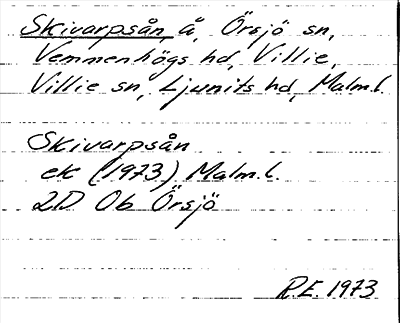 Skivarpsån, å, Örsjö sn,
Vemmenhögs hd, Villie,
Villie sn, Ljunits hd, Malm.l.
Skivarpsån
ek (1973) Malm.l.
2D Ob Örsjö
R.E. 1973